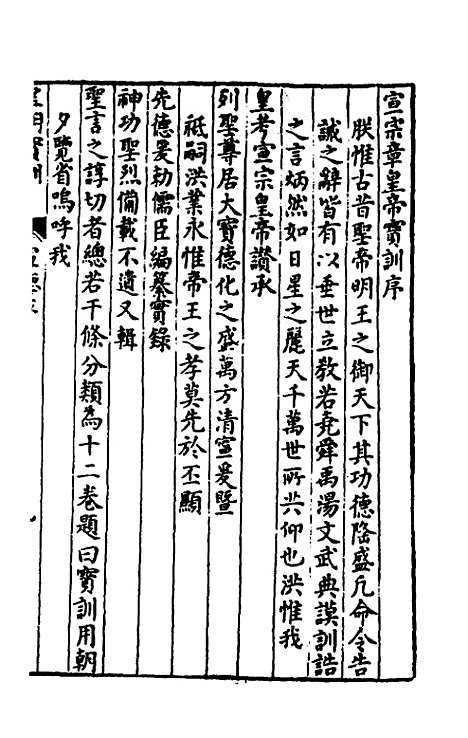 宣宗章皇帝寶訓序
朕惟古昔聖帝明王之御天下其功德隆盛凡命令告
誡之辭皆有以垂世立教若堯舜禹湯文武典謨訓誥
之言炳然如日星之麗天千萬世所共仰也洪惟我
皇考宣宗皇帝讚承
列聖尊居大寶德化之盛萬方清宣爰暨
祗嗣洪業永惟帝王之孝莫先於丕顯
先德爰勅儒臣編纂實錄
神功聖烈備載不遺又輯
聖言之諄切者總若干條分類為十二卷題曰寶訓用朝
夕覽省嗚呼我